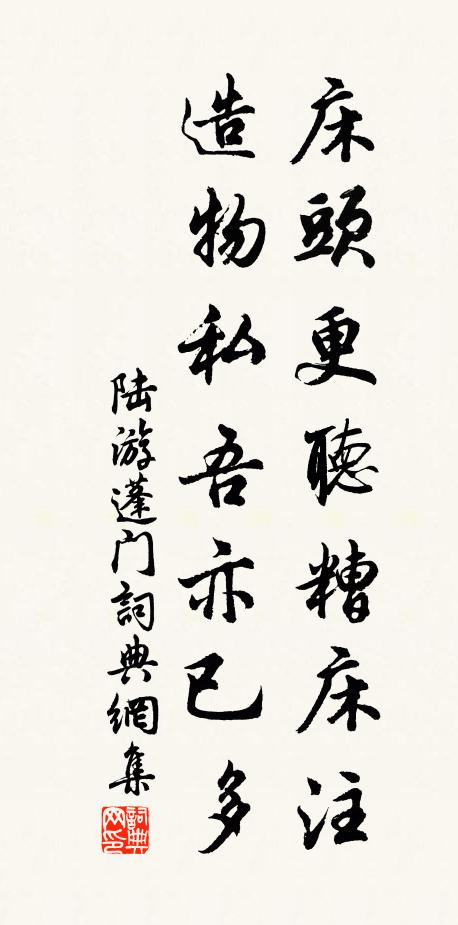 床頭更聽糟床注
造物私吾亦已多
陆游蓬门詞典網集
詞典網印